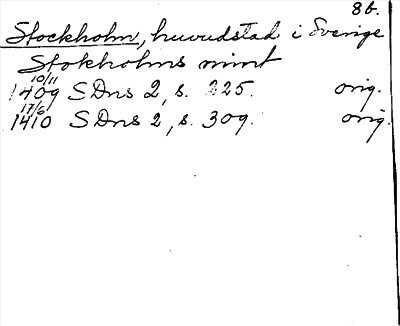 86.
Stockholm, huvudstad i Sverige
Stokholms mint
10/11
1409 SDns 2, s. 225. orig.
17/6
1410 SDns 2, s. 309. orig.